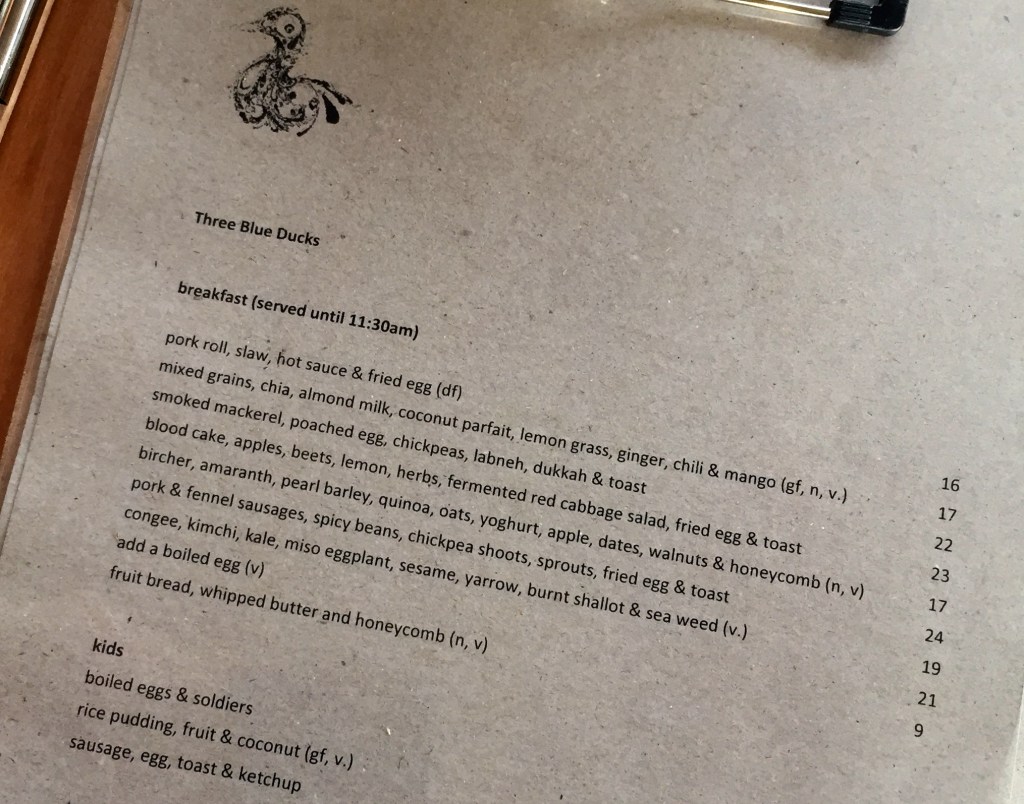 Three Blue Ducks
breakfast (served until 11:30am)
pork roll, slaw, hot sauce & fried egg (df) 16
mixed grains, chia, almond milk, coconut parfait, lemon grass, ginger, chili & mango (gf, n, v.) 17
smoked mackerel, poached egg, chickpeas, labneh, dukkah & toast 22
blood cake, apples, beets, lemon, herbs, fermented red cabbage salad, fried egg & toast 23
bircher, amaranth, pearl barley, quinoa, oats, yoghurt, apple, dates, walnuts & honeycomb (n, v) 17
pork & fennel sausages, spicy beans, chickpea shoots, sprouts, fried egg & toast 24
congee, kimchi, kale, miso eggplant, sesame, yarrow, burnt shallot & sea weed (v.) 19
add a boiled egg (v) 21
fruit bread, whipped butter and honeycomb (n, v) 9
kids
boiled eggs & soldiers
rice pudding, fruit & coconut (gf, v.)
sausage, egg, toast & ketchup